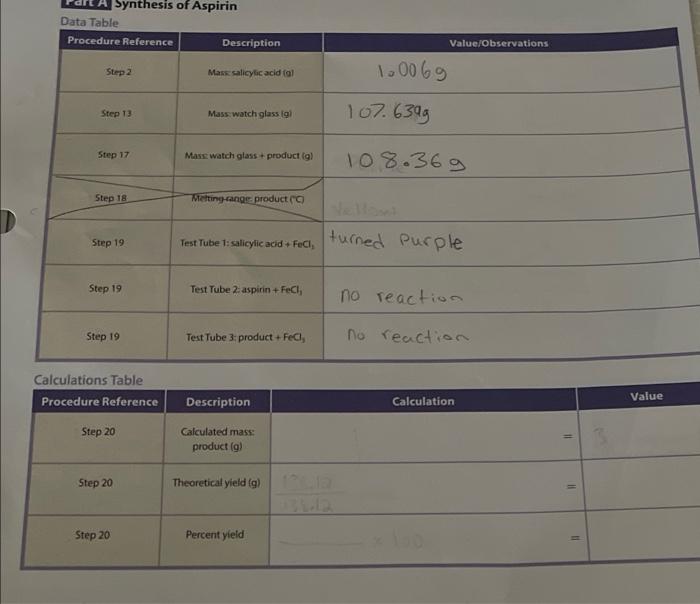 Part A Synthesis of Aspirin
Data Table
Procedure Reference Description Value/Observations
Step 2 Mass: salicylic acid (g) 1.006g
Step 13 Mass: watch glass (g) 107.639g
Step 17 Mass: watch glass + product (g) 108.36g
Step 18 Melting range: product (°C) Yellow
Step 19 Test Tube 1: salicylic acid + FeCl₃ turned purple
Step 19 Test Tube 2: aspirin + FeCl₃ no reaction
Step 19 Test Tube 3: product + FeCl₃ no reaction
Calculations Table
Procedure Reference Description Calculation Value
Step 20 Calculated mass: product (g) = 3
Step 20 Theoretical yield (g) =
138.12
Step 20 Percent yield x 100 =